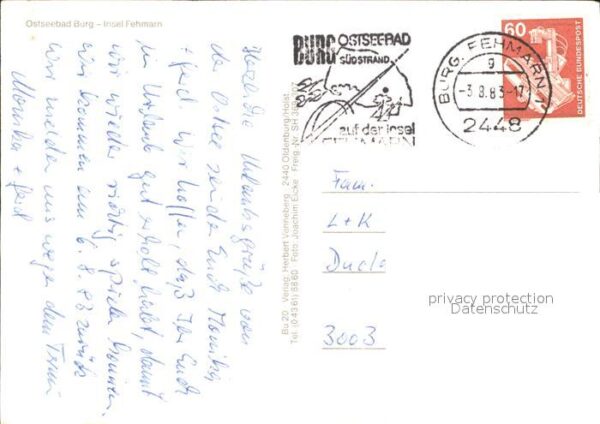 Ostseebad Burg – Insel Fehmarn
Herzliche Urlaubsgrüße von
der Ostsee senden Euch Monika
+ Gerd. Wir hoffen, daß Ihr Euch
im Urlaub gut erholt habt, damit
wir wieder richtig spielen können.
Wir kommen am 6.8.83 zurück
Wir melden uns wegen dem
Monika + Gerd
Bu 20 Verlag: Herbert Vonneberg 2440 Oldenburg/Holst.
Tel. (04361) 6860 Foto: Joachim Eicke Freig. Nr. SH
BURG OSTSEEBAD
SÜDSTRAND
auf der Insel
FEHMARN
BURG, FEHMARN 1
g
-3.8.83-17
2448
60
DEUTSCHE BUNDESPOST
Fam.
L+K
3003
privacy protection
Datenschutz